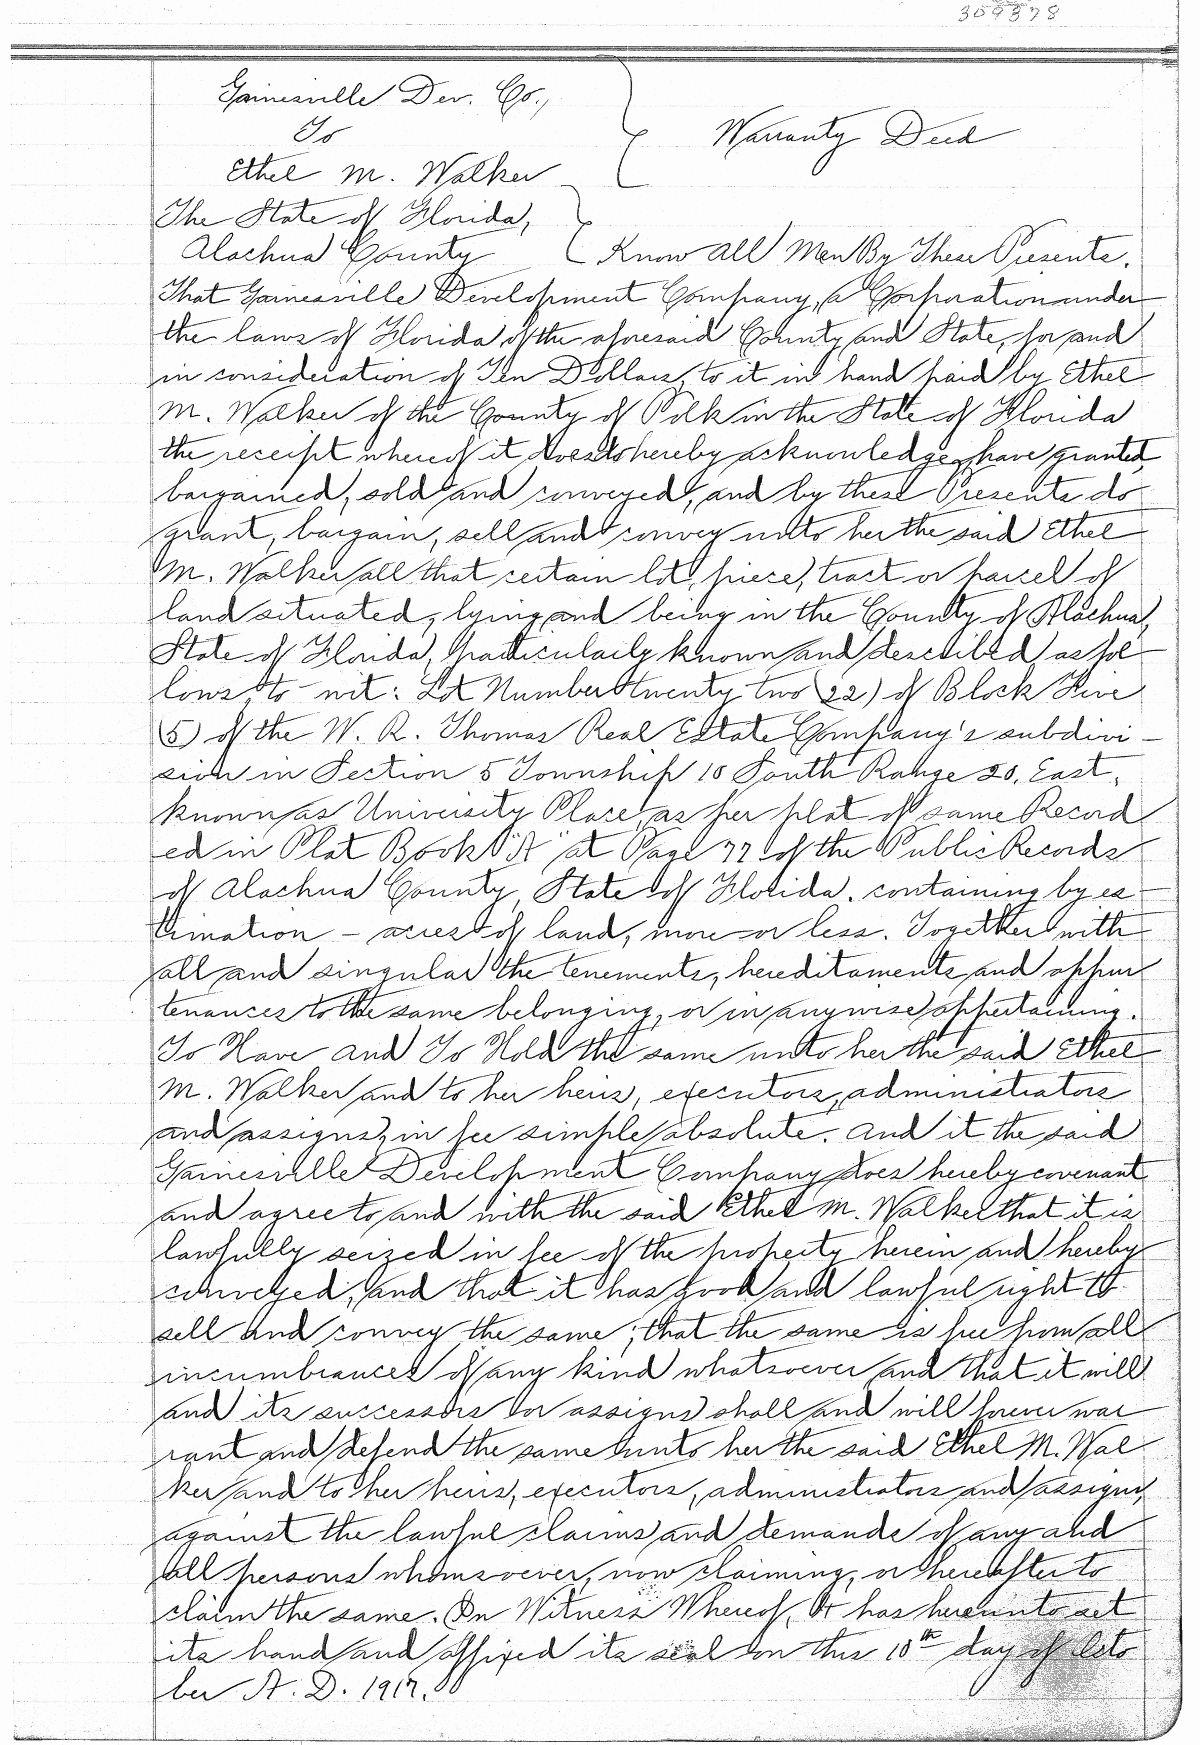 309378
Gainesville Dev. Co.,
To
Warranty Deed
Ethel M. Walker
The State of Florida,
Alachua County Know all Men By These Presents.
That Gainesville Development Company, a Corporation under
the laws of Florida of the aforesaid County and State, for and
in consideration of Ten Dollars, to it in hand paid by Ethel
M. Walker of the County of Polk in the State of Florida
the receipt whereof it does hereby acknowledge, have granted
bargained, sold and conveyed, and by these Presents do
grant, bargain, sell and convey unto her the said Ethel
M. Walker all that certain lot, piece, tract or parcel of
land situated, lying and being in the County of Alachua,
State of Florida, particularly known and described as fol
lows, to - wit: Lot Number twenty two (22) of Block Five
(5) of the W. R. Thomas Real Estate Company's subdivi -
sion in Section 5 Township 10 South Range 20, East,
known as University Place, as per plat of same Record
ed in Plat Book "A" at Page 77 of the Public Records
of Alachua County, State of Florida. containing by es -
timation - acres of land, more or less. Together with
all and singular the tenements, hereditaments and appur
tenances to the same belonging, or in anywise appertaining.
To Have and To Hold the same unto her the said Ethel
M. Walker and to her heirs, executors, administrators
and assigns, in fee simple absolute. And it the said
Gainesville Development Company does hereby covenant
and agree to and with the said Ethel M. Walker that it is
lawfully seized in fee of the property herein and hereby
conveyed, and that it has good and lawful right to
sell and convey the same; that the same is free from all
incumbrances of any kind whatsoever and that it will
and its successors or assigns shall and will forever war
rant and defend the same unto her the said Ethel M. Wal
ker and to her heirs, executors, administrators and assigns,
against the lawful claims and demands of any and
all persons whomsoever, now claiming, or hereafter to
claim the same. In Witness Whereof, It has hereunto set
its hand and affixed its seal on this 10th day of Octo
ber A. D. 1917.